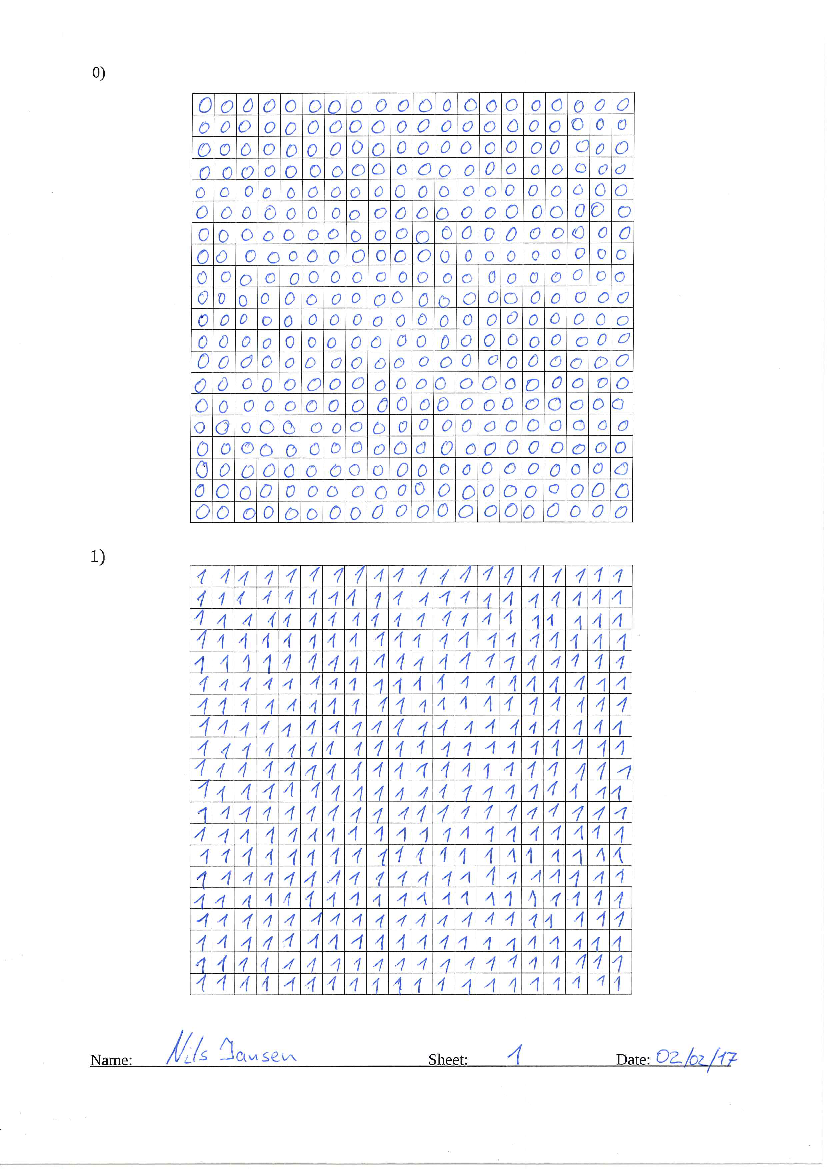 0)
0 0 0 0 0 0 0 0 0 0 0 0 0 0 0 0 0 0 0 0
0 0 0 0 0 0 0 0 0 0 0 0 0 0 0 0 0 0 0 0
0 0 0 0 0 0 0 0 0 0 0 0 0 0 0 0 0 0 0 0
0 0 0 0 0 0 0 0 0 0 0 0 0 0 0 0 0 0 0 0
0 0 0 0 0 0 0 0 0 0 0 0 0 0 0 0 0 0 0 0
0 0 0 0 0 0 0 0 0 0 0 0 0 0 0 0 0 0 0 0
0 0 0 0 0 0 0 0 0 0 0 0 0 0 0 0 0 0 0 0
0 0 0 0 0 0 0 0 0 0 0 0 0 0 0 0 0 0 0 0
0 0 0 0 0 0 0 0 0 0 0 0 0 0 0 0 0 0 0 0
0 0 0 0 0 0 0 0 0 0 0 0 0 0 0 0 0 0 0 0
0 0 0 0 0 0 0 0 0 0 0 0 0 0 0 0 0 0 0 0
0 0 0 0 0 0 0 0 0 0 0 0 0 0 0 0 0 0 0 0
0 0 0 0 0 0 0 0 0 0 0 0 0 0 0 0 0 0 0 0
0 0 0 0 0 0 0 0 0 0 0 0 0 0 0 0 0 0 0 0
0 0 0 0 0 0 0 0 0 0 0 0 0 0 0 0 0 0 0 0
0 0 0 0 0 0 0 0 0 0 0 0 0 0 0 0 0 0 0 0
0 0 0 0 0 0 0 0 0 0 0 0 0 0 0 0 0 0 0 0
0 0 0 0 0 0 0 0 0 0 0 0 0 0 0 0 0 0 0 0
0 0 0 0 0 0 0 0 0 0 0 0 0 0 0 0 0 0 0 0
0 0 0 0 0 0 0 0 0 0 0 0 0 0 0 0 0 0 0 0
1)
1 1 1 1 1 1 1 1 1 1 1 1 1 1 1 1 1 1 1 1
1 1 1 1 1 1 1 1 1 1 1 1 1 1 1 1 1 1 1 1
1 1 1 1 1 1 1 1 1 1 1 1 1 1 1 1 1 1 1 1
1 1 1 1 1 1 1 1 1 1 1 1 1 1 1 1 1 1 1 1
1 1 1 1 1 1 1 1 1 1 1 1 1 1 1 1 1 1 1 1
1 1 1 1 1 1 1 1 1 1 1 1 1 1 1 1 1 1 1 1
1 1 1 1 1 1 1 1 1 1 1 1 1 1 1 1 1 1 1 1
1 1 1 1 1 1 1 1 1 1 1 1 1 1 1 1 1 1 1 1
1 1 1 1 1 1 1 1 1 1 1 1 1 1 1 1 1 1 1 1
1 1 1 1 1 1 1 1 1 1 1 1 1 1 1 1 1 1 1 1
1 1 1 1 1 1 1 1 1 1 1 1 1 1 1 1 1 1 1 1
1 1 1 1 1 1 1 1 1 1 1 1 1 1 1 1 1 1 1 1
1 1 1 1 1 1 1 1 1 1 1 1 1 1 1 1 1 1 1 1
1 1 1 1 1 1 1 1 1 1 1 1 1 1 1 1 1 1 1 1
1 1 1 1 1 1 1 1 1 1 1 1 1 1 1 1 1 1 1 1
1 1 1 1 1 1 1 1 1 1 1 1 1 1 1 1 1 1 1 1
1 1 1 1 1 1 1 1 1 1 1 1 1 1 1 1 1 1 1 1
1 1 1 1 1 1 1 1 1 1 1 1 1 1 1 1 1 1 1 1
1 1 1 1 1 1 1 1 1 1 1 1 1 1 1 1 1 1 1 1
1 1 1 1 1 1 1 1 1 1 1 1 1 1 1 1 1 1 1 1
Name: Nils Jansen Sheet: 1 Date: 02/02/17